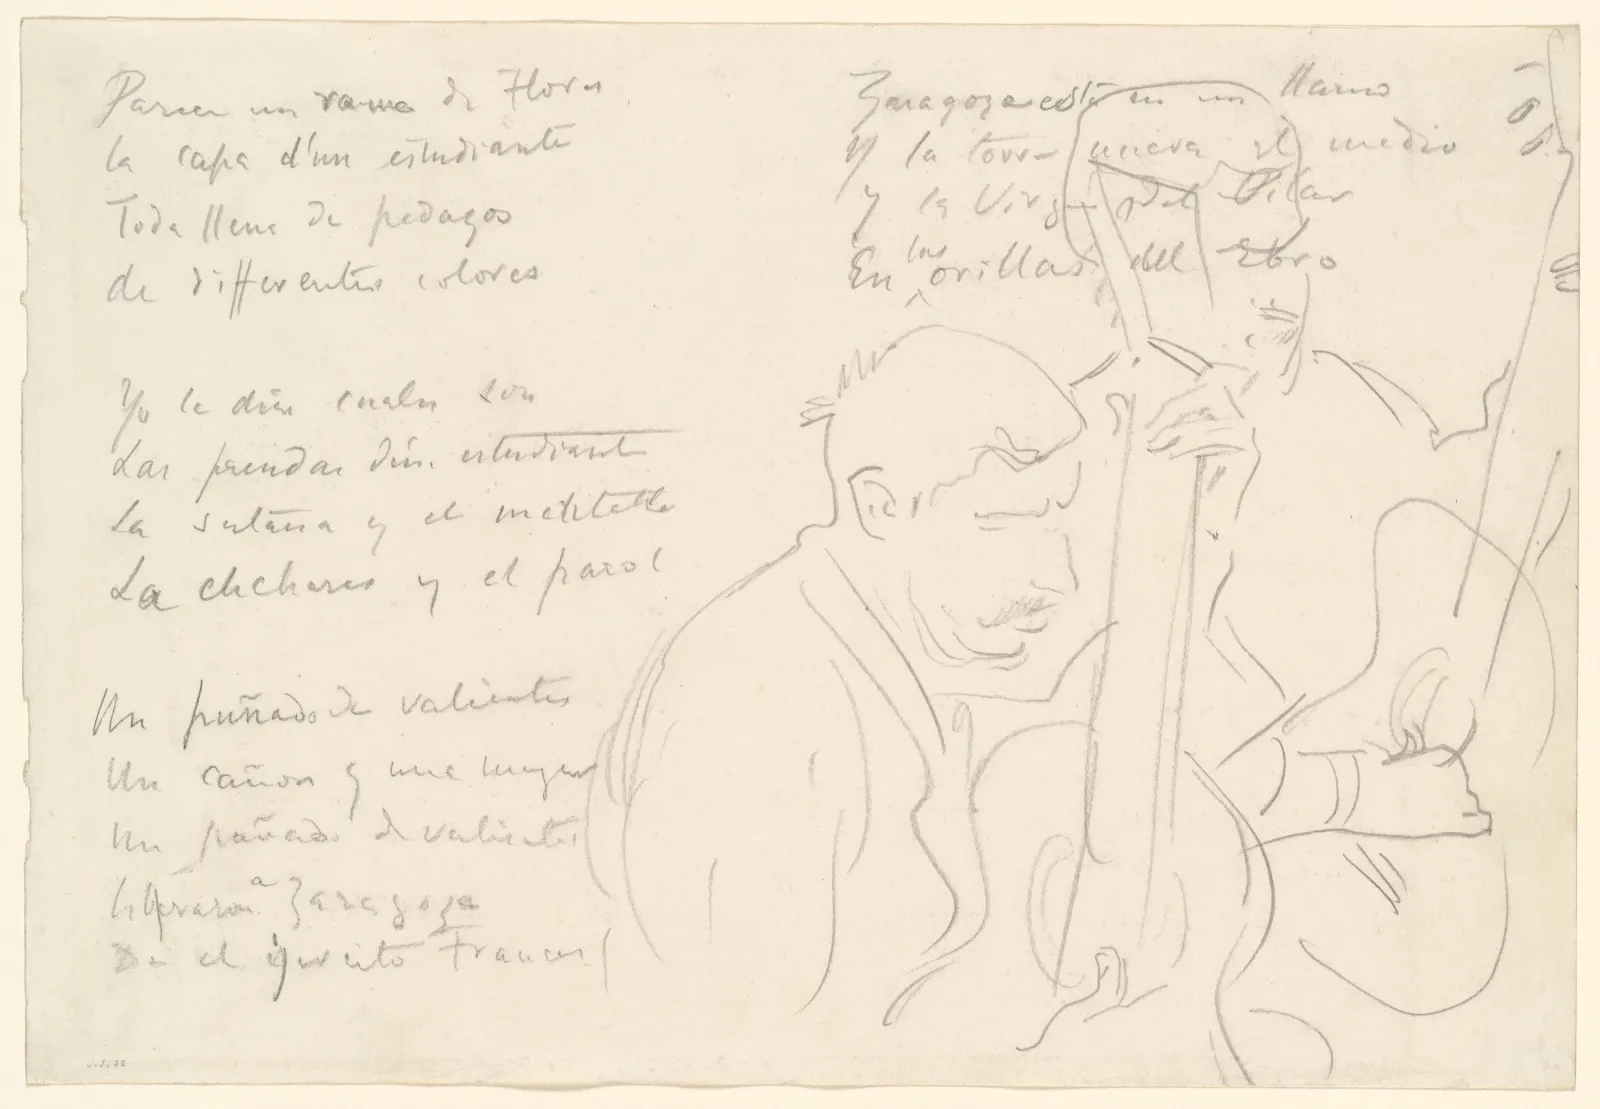 Parece un ramo de Flores
la capa d'un estudiante
Toda llena de pedazos
de differentes colores
Yo le diré cuales son
Las prendas d'un estudiante
La sutana y el
La y el
Un puñado de valientes
Un cañon y una muger
Un puñado de valientes
liberaron a Zaragoza
De el ejercito Frances
Zaragoza está en un llano
Y la torre nueva al medio
y la Virgen del Pilar
En las orillas del Ebro
J.S. 22